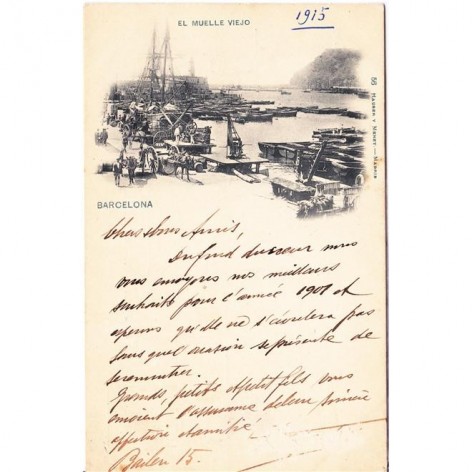 1915
EL MUELLE VIEJO
56 HAUSER Y MENET.—MADRID
BARCELONA
Chers bons Amis,
Du fond du cœur nous
vous envoyons nos meilleurs
souhaits pour l'année 1901 et
espérons qu'elle ne s'écoulera pas
sans que l'occasion se présente de
se rencontrer.
Grands, petits et petits fils vous
envoient l'assurance de leur sincère
affection et amitié
Bailen 15.